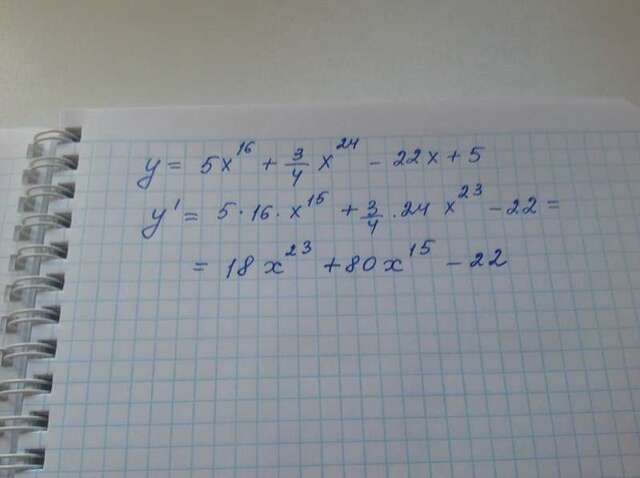 y = 5x^16 + 3/4 x^24 - 22x + 5
y' = 5·16·x^15 + 3/4·24 x^23 - 22 =
= 18x^23 + 80x^15 - 22